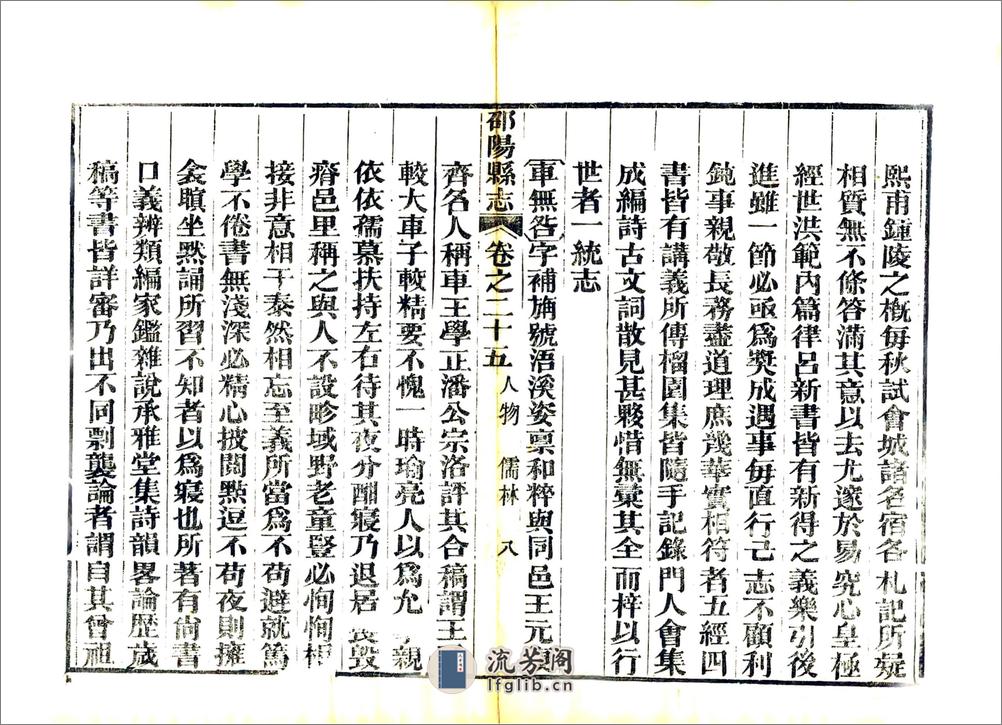 熙甫鍾陵之概每秋試會城諸名宿各札記所疑
相質無不條答滿其意以去尤邃於易究心皇極
經世洪範內篇律呂新書皆有新得之義樂引後
進雖一節必亟爲奬成遇事毎直行己志不顧利
鈍事親敬長務盡道理庶幾華實相符者五經四
書皆有講義所傳榴園集皆隨手記錄門人會集
成編詩古文詞散見甚夥惜無彙其全而梓以行
世者一統志
車無咎字補旃號浯溪姿禀和粹與同邑王元
齊名人稱車王學正潘公宗洛評其合稿謂王
較大車子較精要不愧一時瑜亮人以爲允 親
依依孺慕扶持左右待其夜分酣寢乃退居喪毀
瘠邑里稱之與人不設畛域野老童豎必恂恂相
接非意相干泰然相忘至義所當爲不苟避就篤
學不倦書無淺深必精心披閱點逗不苟夜則擁
衾瞑坐默誦所習不知者以爲寢也所著有尙書
口義辨類編家鑑雜說承雅堂集詩韻畧論歷歲
稿等書皆詳審乃出不同剽襲論者謂自其曾祖
邵陽縣志 卷之二十五 人物 儒林 八
流芳阁
lfglib.cn